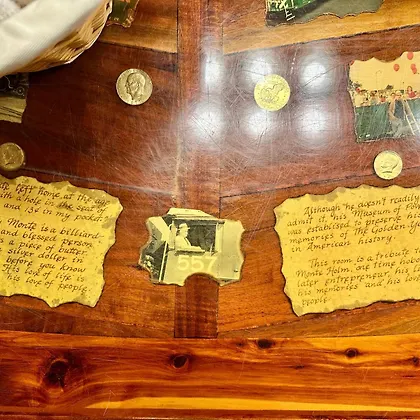 left home at the age
with a hole in the seat of
and 13¢ in my pocket
Monte is a billiard
and blessed person
a piece of butter
silver dollar in
before you know
His love of life is
his love of people
557
Although he doesn't readily
admit it, his Museum
was established to preserve
memories of the Golden
in American history.
This room is a tribute
Monte Holm, one time hobo
later entrepreneur, his
his memories and his
people.